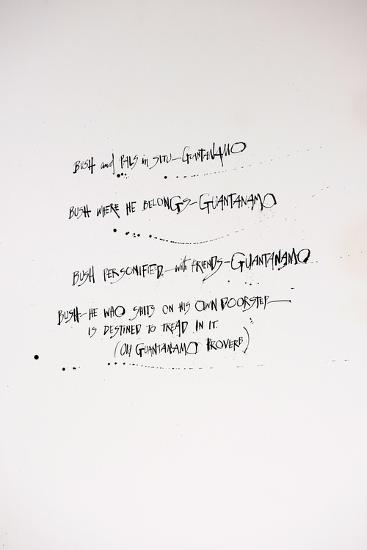 BUSH and PALS in SITU - GUANTANAMO
BUSH WHERE HE BELONGS - GUANTANAMO
BUSH PERSONIFIED - with FRIENDS - GUANTANAMO
BUSH - HE WHO SHITS ON HIS OWN DOORSTEP
IS DESTINED TO TREAD IN IT.
(OLD GUANTANAMO PROVERB)